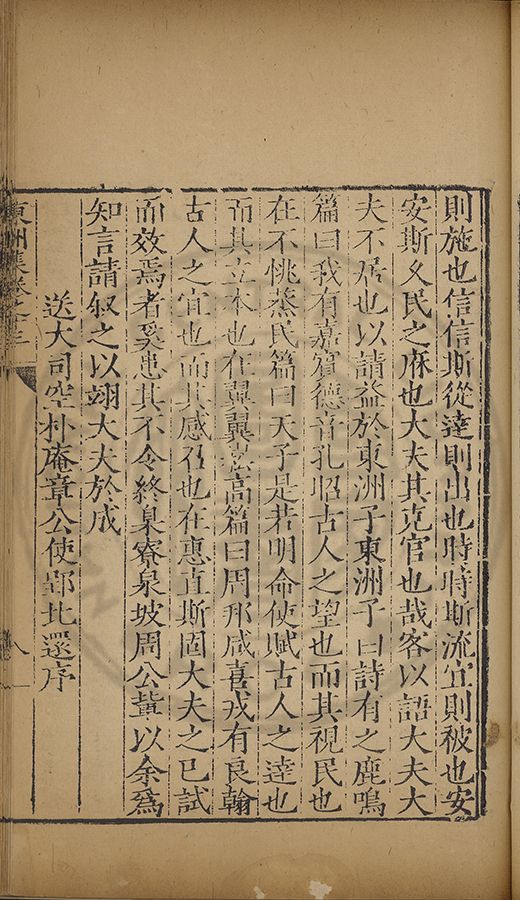 則施也信信斯從達則出也時時斯流宜則被也安
安斯乂民之庥也大夫其克官也哉客以語大夫大
夫不居也以請益於東洲子東洲子曰詩有之鹿鳴
篇曰我有嘉賓德音孔昭古人之望也而其視民也
在不恌烝民篇曰天子是若明命使賦古人之達也
而其立本也在翼翼崧高篇曰周邦咸喜戎有良翰
古人之宜也而其感召也在惠直斯固大夫之已試
而效焉者奚患其不令終臬寮泉坡周公輩以余為
知言請叙之以翊大夫於成
送大司空朴庵章公使郢北還序
東洲集卷之三
八